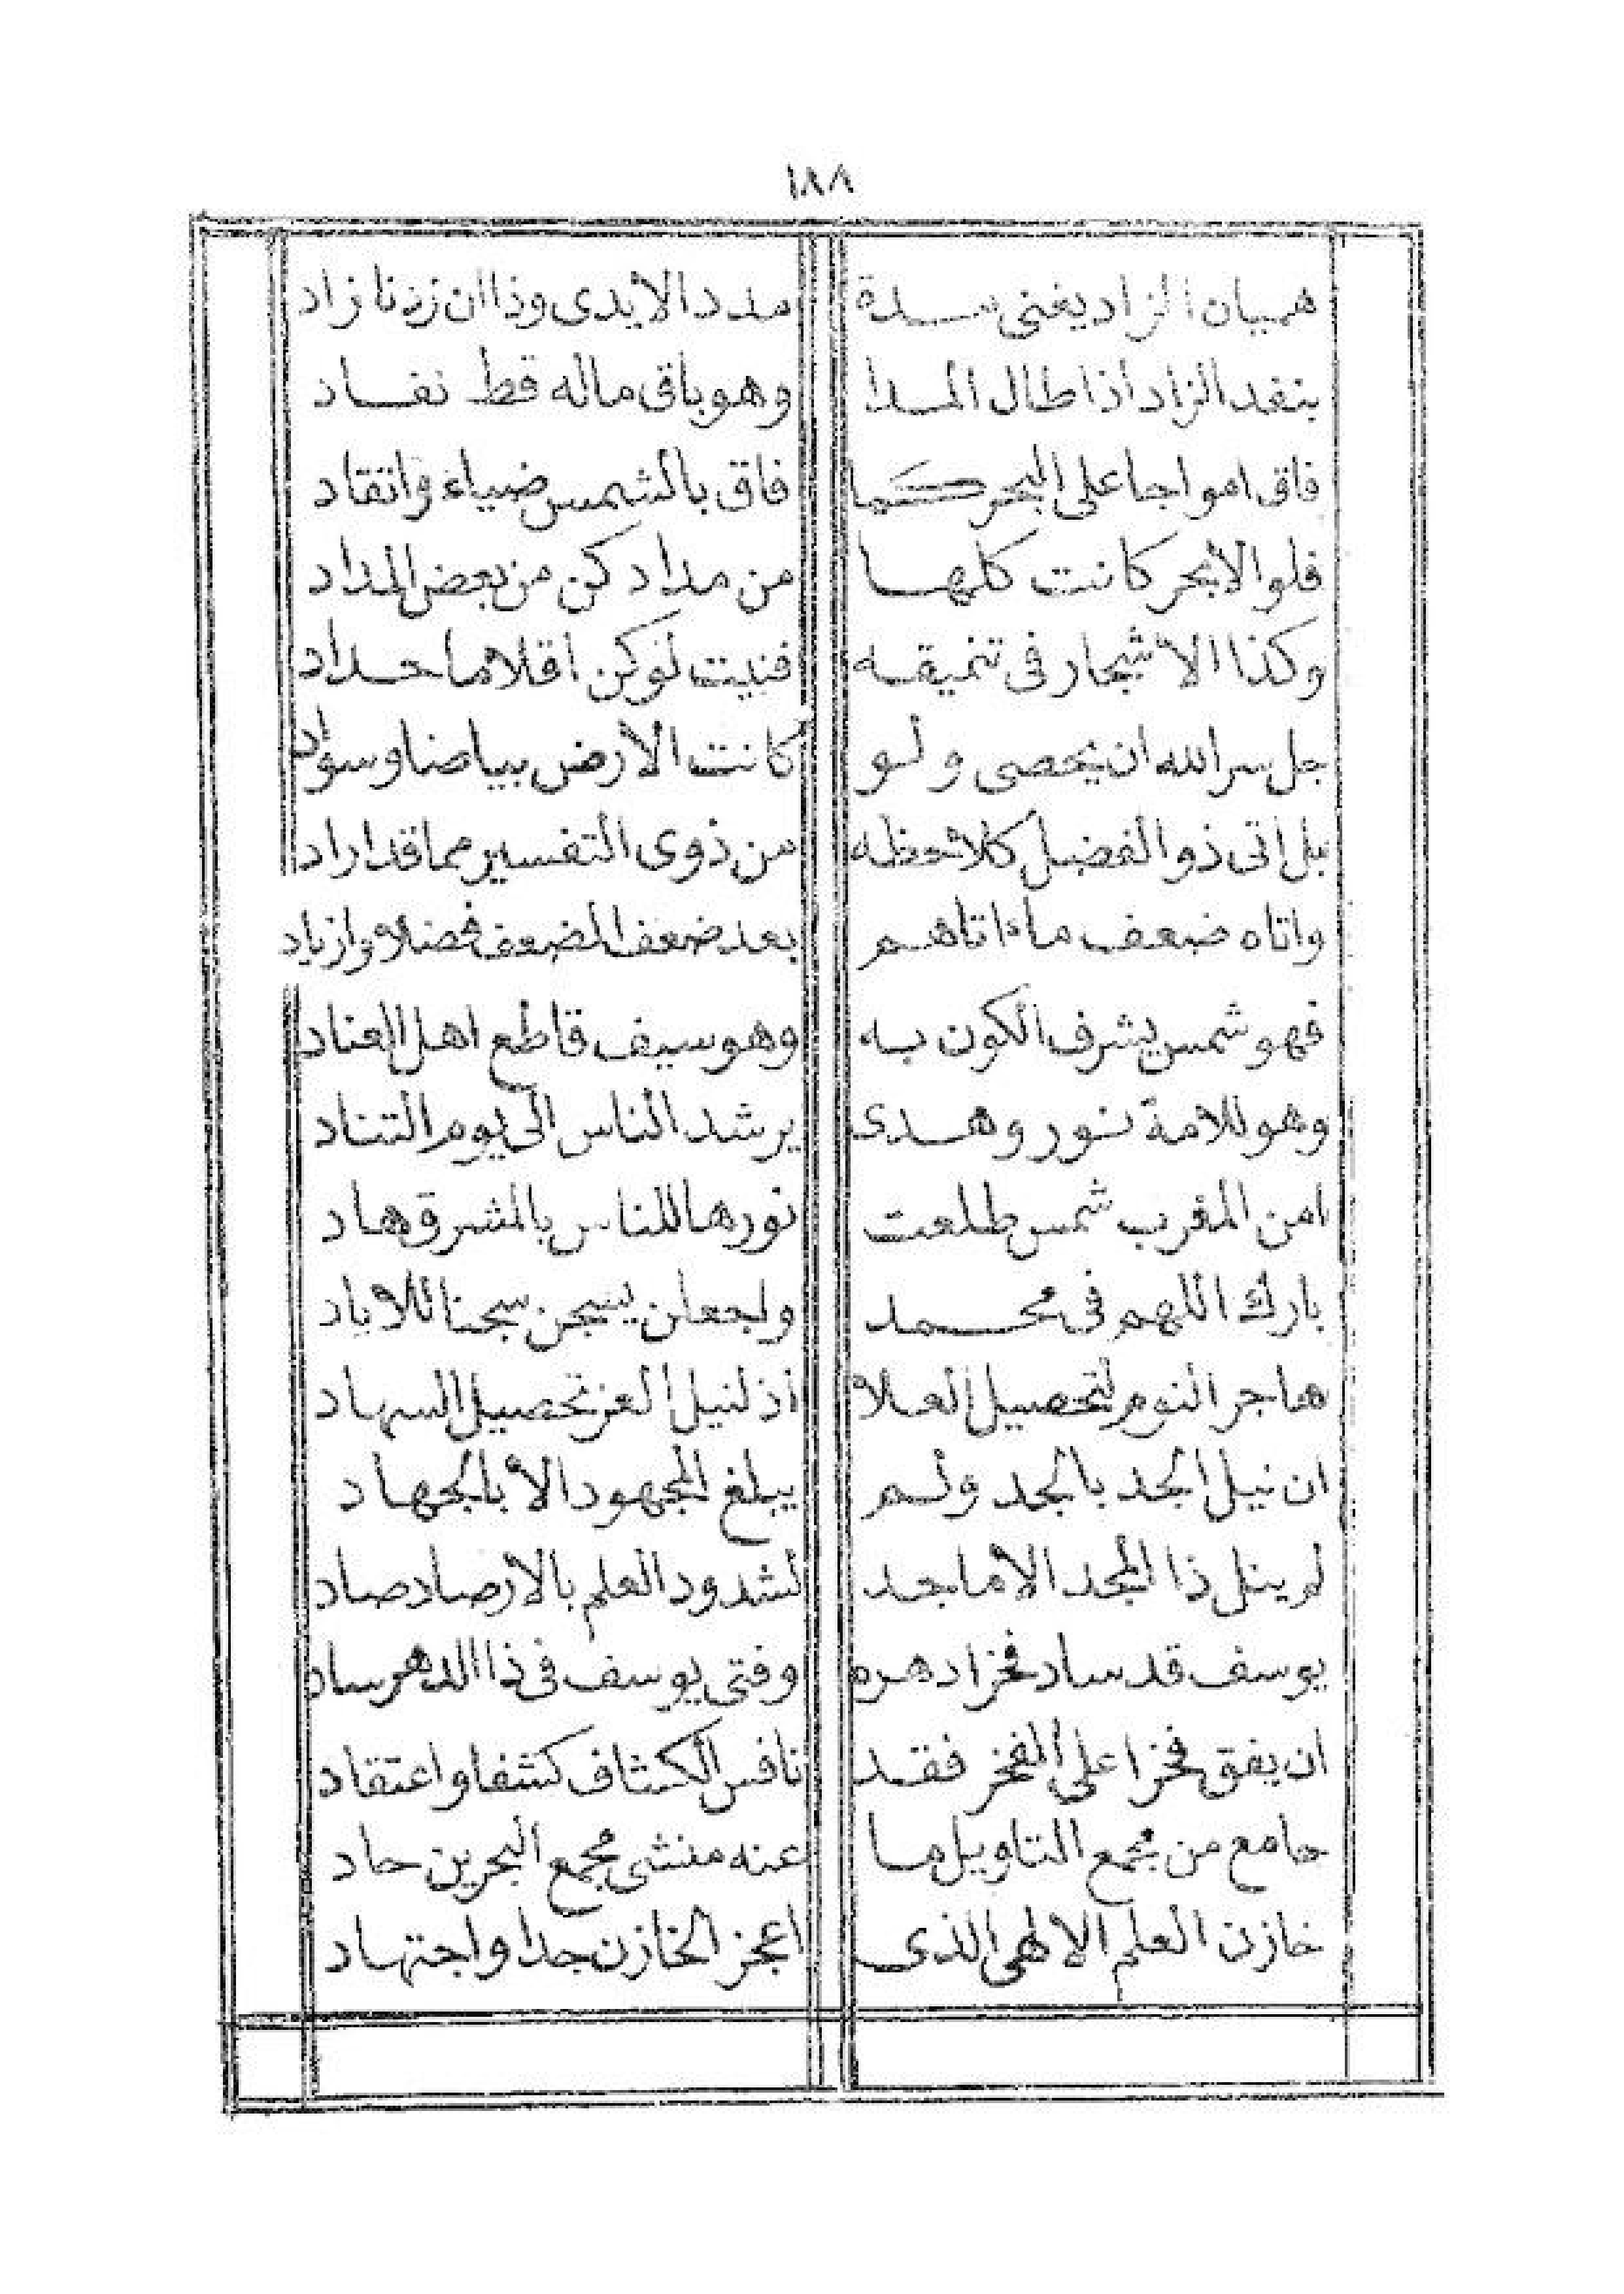 ١٨٨
هميان الزاد يغنى مدة مدد الايدى وذا ان زدنا زاد
ينفد الزاد اذا طال المدا وهو باقى ماله قط نفاد
فاق امواجا على البحر كما فاق بالشمس ضياء واتقاد
فلو الابحر كانت كلها من مداد كن من بعض المداد
وكذا الاشجار فى تنميقه فنيت لو كن اقلاما حداد
جل سر الله ان يحصى ولو كانت الارض بياضا وسواد
بل اتى ذو الفضل كلا حظه من ذوى التفسير مما قد اراد
واتاه ضعف ما اتاهم بعد ضعف الضعف فضلا وازياد
فهو شمس يشرف الكون به وهو سيف قاطع اهل العناد
وهو للامة نور وهدى يرشد الناس الى يوم التناد
امن المغرب شمس طلعت نورها للناس بالمشرق هاد
بارك اللهم فى محمد واجعلن يسجن سجنا للاباد
هاجر النوم لتحصيل العلا اذ لنيل العز تحصيل السهاد
ان نيل المجد بالجد ولم يبلغ المجهود الا بالجهاد
لم ينل ذا المجد الا ماجد لشدود العلم بالارصاد صاد
يوسف قد ساد فخرا دهره وفتى يوسف فى ذا الدهر ساد
ان يفق فخرا على الفخر فقد نافس الكشاف كشفا واعتقاد
جامع من مجمع التاويل ما عنه منشى مجمع البحرين حاد
خازن العلم الالهى الذى اعجز الخازن جدا واجتهاد